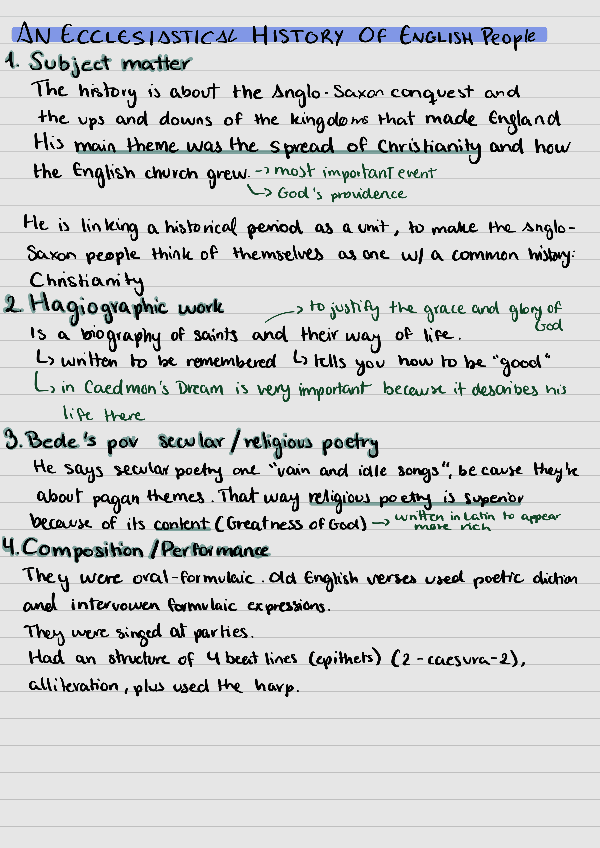 AN ECCLESIASTICAL HISTORY OF ENGLISH People
1. Subject matter
The history is about the Anglo-Saxon conquest and
the ups and downs of the kingdoms that made England
His main theme was the spread of Christianity and how
the English church grew. → most important event
↳ God's providence
He is linking a historical period as a unit, to make the Anglo-
Saxon people think of themselves as one w/ a common history:
Christianity
2. Hagiographic work → to justify the grace and glory of
God
Is a biography of saints and their way of life.
↳ written to be remembered ↳ tells you how to be "good"
↳ in Caedmon's Dream is very important because it describes his
life there
3. Bede's pov secular/religious poetry
He says secular poetry one "vain and idle songs", because they're
about pagan themes. That way religious poetry is superior
because of its content (Greatness of God) → written in Latin to appear
more rich
4. Composition/Performance
They were oral-formulaic. Old English verses used poetic diction
and intervowen formulaic expressions.
They were singed at parties.
Had an structure of 4 beat lines (epithets) (2-caesura-2),
alliteration, plus used the harp.